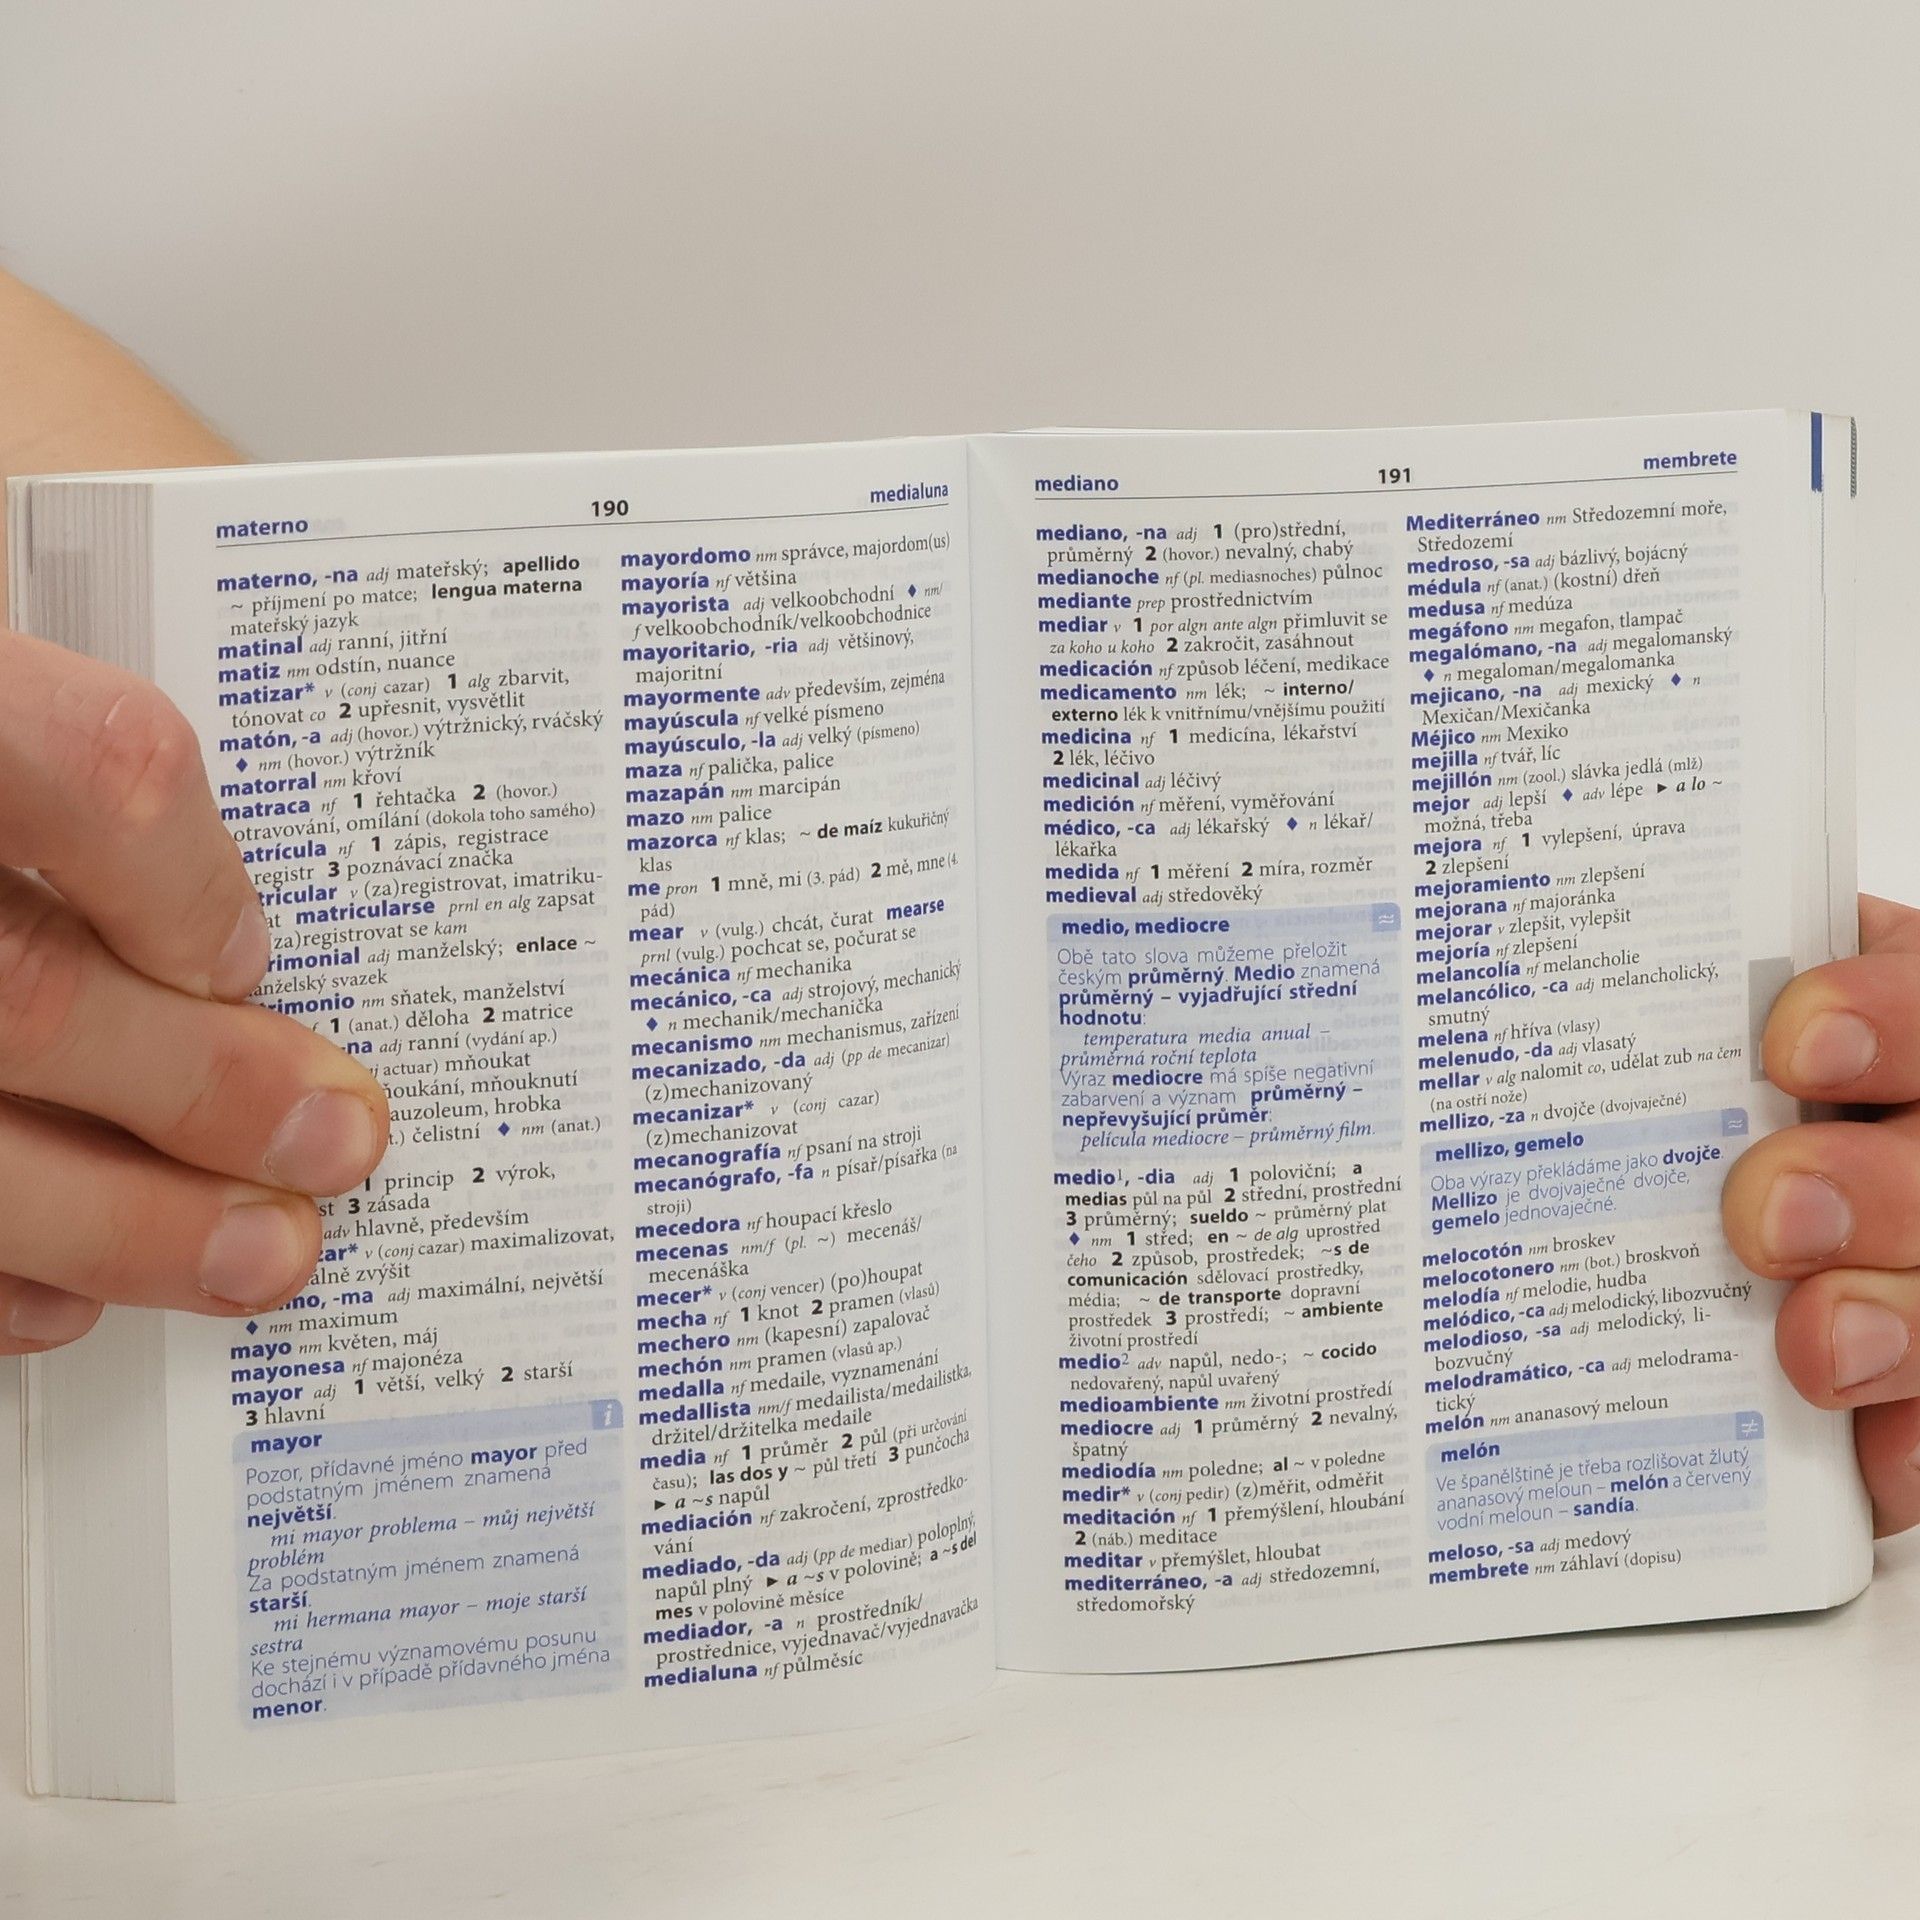 materno
190
medialuna
materno, -na adj mateřský; apellido
~ příjmení po matce; lengua materna
mateřský jazyk
matinal adj ranní, jitřní
matiz nm odstín, nuance
matizar* v (conj cazar) 1 alg zbarvit,
tónovat co 2 upřesnit, vysvětlit
matón, -a adj (hovor.) výtržnický, rváčský
♦ nm (hovor.) výtržník
matorral nm křoví
matraca nf 1 řehtačka 2 (hovor.)
otravování, omílání (dokola toho samého)
atrícula nf 1 zápis, registrace
registr 3 poznávací značka
tricular v (za)registrovat, imatriku-
at matricularse prnl en alg zapsat
(za)registrovat se kam
rimonial adj manželský; enlace ~
anželský svazek
trimonio nm sňatek, manželství
1 (anat.) děloha 2 matrice
-na adj ranní (vydání ap.)
actuar) mňoukat
ňoukání, mňouknutí
auzoleum, hrobka
čelistní ♦ nm (anat.)
1 princip 2 výrok,
st 3 zásada
adv hlavně, především
zar* v (conj cazar) maximalizovat,
álně zvýšit
mo, -ma adj maximální, největší
♦ nm maximum
mayo nm květen, máj
mayonesa nf majonéza
mayor adj 1 větší, velký 2 starší
3 hlavní
i
mayor
Pozor, přídavné jméno mayor před
podstatným jménem znamená
největší.
mi mayor problema – můj největší
problém
Za podstatným jménem znamená
starší.
mi hermana mayor – moje starší
sestra
Ke stejnému významovému posunu
dochází i v případě přídavného jména
menor.
mayordomo nm správce, majordom(us)
mayoría nf většina
mayorista adj velkoobchodní ♦ nm/
f velkoobchodník/velkoobchodnice
mayoritario, -ria adj většinový,
majoritní
mayormente adv především, zejména
mayúscula nf velké písmeno
mayúsculo, -la adj velký (písmeno)
maza nf palička, palice
mazapán nm marcipán
mazo nm palice
mazorca nf klas; ~ de maíz kukuřičný
klas
me pron 1 mně, mi (3. pád) 2 mě, mne (4.
pád)
mear v (vulg.) chcát, čurat mearse
prnl (vulg.) pochcat se, počurat se
mecánica nf mechanika
mecánico, -ca adj strojový, mechanický
♦ n mechanik/mechanička
mecanismo nm mechanismus, zařízení
mecanizado, -da adj (pp de mecanizar)
(z)mechanizovaný
mecanizar* v (conj cazar)
(z)mechanizovat
mecanografía nf psaní na stroji
mecanógrafo, -fa n písař/písařka (na
stroji)
mecedora nf houpací křeslo
mecenas nm/f (pl. ~) mecenáš/
mecenáška
mecer* v (conj vencer) (po)houpat
mecha nf 1 knot 2 pramen (vlasů)
mechero nm (kapesní) zapalovač
mechón nm pramen (vlasů ap.)
medalla nf medaile, vyznamenání
medallista nm/f medailista/medailistka,
držitel/držitelka medaile
media nf 1 průměr 2 půl (při určování
času); las dos y ~ půl třetí 3 punčocha
► a ~s napůl
mediación nf zakročení, zprostředko-
vání
mediado, -da adj (pp de mediar) poloplný,
napůl plný ► a ~s v polovině; a ~s del
mes v polovině měsíce
mediador, -a n prostředník/
prostřednice, vyjednavač/vyjednavačka
medialuna nf půlměsíc
mediano
191
membrete
mediano, -na adj 1 (pro)střední,
průměrný 2 (hovor.) nevalný, chabý
medianoche nf (pl. mediasnoches) půlnoc
mediante prep prostřednictvím
mediar v 1 por algn ante algn přimluvit se
za koho u koho 2 zakročit, zasáhnout
medicación nf způsob léčení, medikace
medicamento nm lék; ~ interno/
externo lék k vnitřnímu/vnějšímu použití
medicina nf 1 medicína, lékařství
2 lék, léčivo
medicinal adj léčivý
medición nf měření, vyměřování
médico, -ca adj lékařský ♦ n lékař/
lékařka
medida nf 1 měření 2 míra, rozměr
medieval adj středověký
≈
medio, mediocre
Obě tato slova můžeme přeložit
českým průměrný. Medio znamená
průměrný – vyjadřující střední
hodnotu:
temperatura media anual –
průměrná roční teplota
Výraz mediocre má spíše negativní
zabarvení a význam průměrný –
nepřevyšující průměr:
película mediocre – průměrný film.
medio¹, -dia adj 1 poloviční; a
medias půl na půl 2 střední, prostřední
3 průměrný; sueldo ~ průměrný plat
♦ nm 1 střed; en ~ de alg uprostřed
čeho 2 způsob, prostředek; ~s de
comunicación sdělovací prostředky,
média; ~ de transporte dopravní
prostředek 3 prostředí; ~ ambiente
životní prostředí
medio² adv napůl, nedo-; ~ cocido
nedovařený, napůl uvařený
medioambiente nm životní prostředí
mediocre adj 1 průměrný 2 nevalný,
špatný
mediodía nm poledne; al ~ v poledne
medir* v (conj pedir) (z)měřit, odměřit
meditación nf 1 přemýšlení, hloubání
2 (náb.) meditace
meditar v přemýšlet, hloubat
mediterráneo, -a adj středozemní,
středomořský
Mediterráneo nm Středozemní moře,
Středozemí
medroso, -sa adj bázlivý, bojácný
médula nf (anat.) (kostní) dřeň
medusa nf medúza
megáfono nm megafon, tlampač
megalómano, -na adj megalomanský
♦ n megaloman/megalomanka
mejicano, -na adj mexický ♦ n
Mexičan/Mexičanka
Méjico nm Mexiko
mejilla nf tvář, líc
mejillón nm (zool.) slávka jedlá (mlž)
mejor adj lepší ♦ adv lépe ► a lo ~
možná, třeba
mejora nf 1 vylepšení, úprava
2 zlepšení
mejoramiento nm zlepšení
mejorana nf majoránka
mejorar v zlepšit, vylepšit
mejoría nf zlepšení
melancolía nf melancholie
melancólico, -ca adj melancholický,
smutný
melena nf hříva (vlasy)
melenudo, -da adj vlasatý
mellar v alg nalomit co, udělat zub na čem
(na ostří nože)
mellizo, -za n dvojče (dvojvaječné)
≈
mellizo, gemelo
Oba výrazy překládáme jako dvojče.
Mellizo je dvojvaječné dvojče,
gemelo jednovaječné.
melocotón nm broskev
melocotonero nm (bot.) broskvoň
melodía nf melodie, hudba
melódico, -ca adj melodický, libozvučný
melodioso, -sa adj melodický, li-
bozvučný
melodramático, -ca adj melodrama-
tický
melón nm ananasový meloun
≠
melón
Ve španělštině je třeba rozlišovat žlutý
ananasový meloun – melón a červený
vodní meloun – sandía.
meloso, -sa adj medový
membrete nm záhlaví (dopisu)